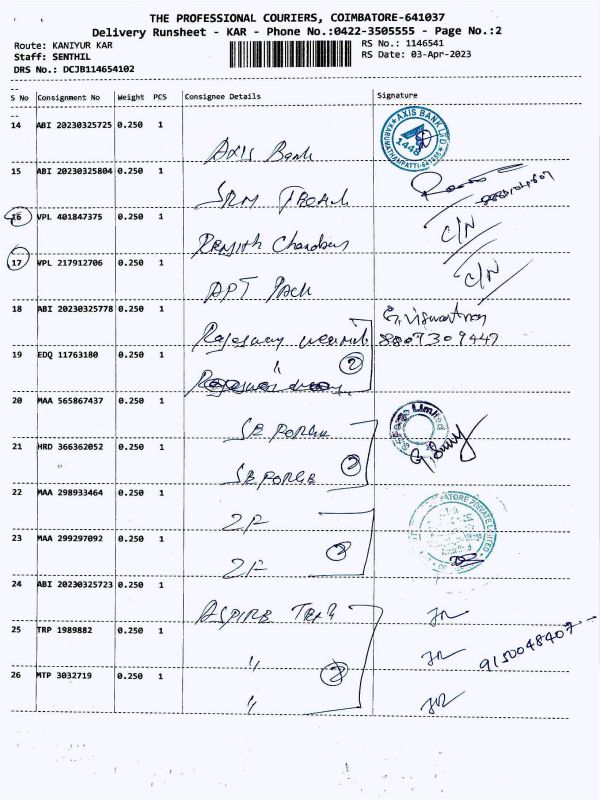 THE PROFESSIONAL COURIERS, COIMBATORE-641037
Delivery Runsheet - KAR - Phone No.:0422-3505555 - Page No.:2
Route: KANIYUR KAR
RS No.: 1146541
Staff: SENTHIL
RS Date: 03-Apr-2023
DRS No.: DCJB114654102
S No Consignment No Weight PCS Consignee Details Signature
14 ABI 20230325725 0.250 1
Axis Bank
AXIS BANK LTD
1448
15 ABI 20230325804 0.250 1
SRM
16 VPL 401847375 0.250 1
C/N
17 VPL 217912706 0.250 1
APT Pack
C/N
18 ABI 20230325778 0.250 1
8807309447
19 EDQ 11763180 0.250 1
"
2
20 MAA 565867437 0.250 1
SB FORGE
Limited
21 HRD 366362052 0.250 1
SB FORGE
22 MAA 298933464 0.250 1
ZF
PRIVATE LIMITED
23 MAA 299297092 0.250 1
ZF
24 ABI 20230325723 0.250 1
ASPIRE
25 TRP 1989882 0.250 1
"
9150048407
26 MTP 3032719 0.250 1
"